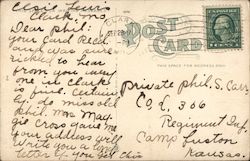 Elsie Lewis
Clark, Mo.
Dear Phil:
your card Rec'd
and was sure
tickled to hear
from you. every
one at Clark
is fine. Certain
ly do miss old
Phil. Mrs. May
got Cross gave me
your address will
Write you a
letter if you get this
POST
CARD
THIS SPACE FOR ADDRESS ONLY
Private Phil. S. Carr
Co. L, 306
Regiment Inf.
Camp Funston
Kansas.